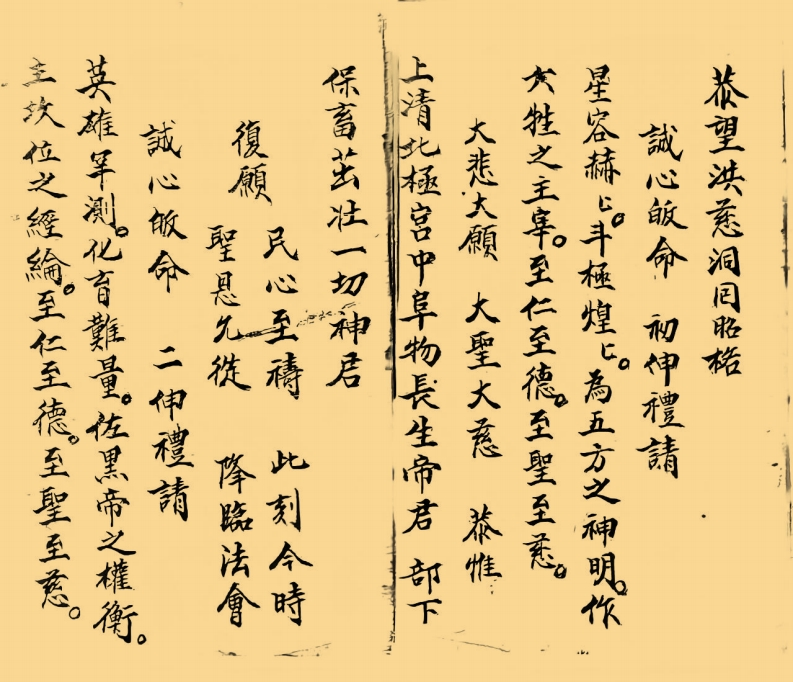 恭望洪慈洞囘昭格
誠心皈命 初伸禮請
星容赫〻。斗極煌〻。為五方之神明。作
六牲之主宰。至仁至德。至聖至慈。
大悲大願 大聖大慈 恭惟
上清北極宮中阜物長生帝君 部下
保畜茁壯一切神君
民心至禱 此刻今時
復願
聖恩允從 降臨法會
誠心皈命 二伸禮請
英雄罕測。化育難量。佐黑帝之權衡。
主坎位之經綸。至仁至德。至聖至慈。